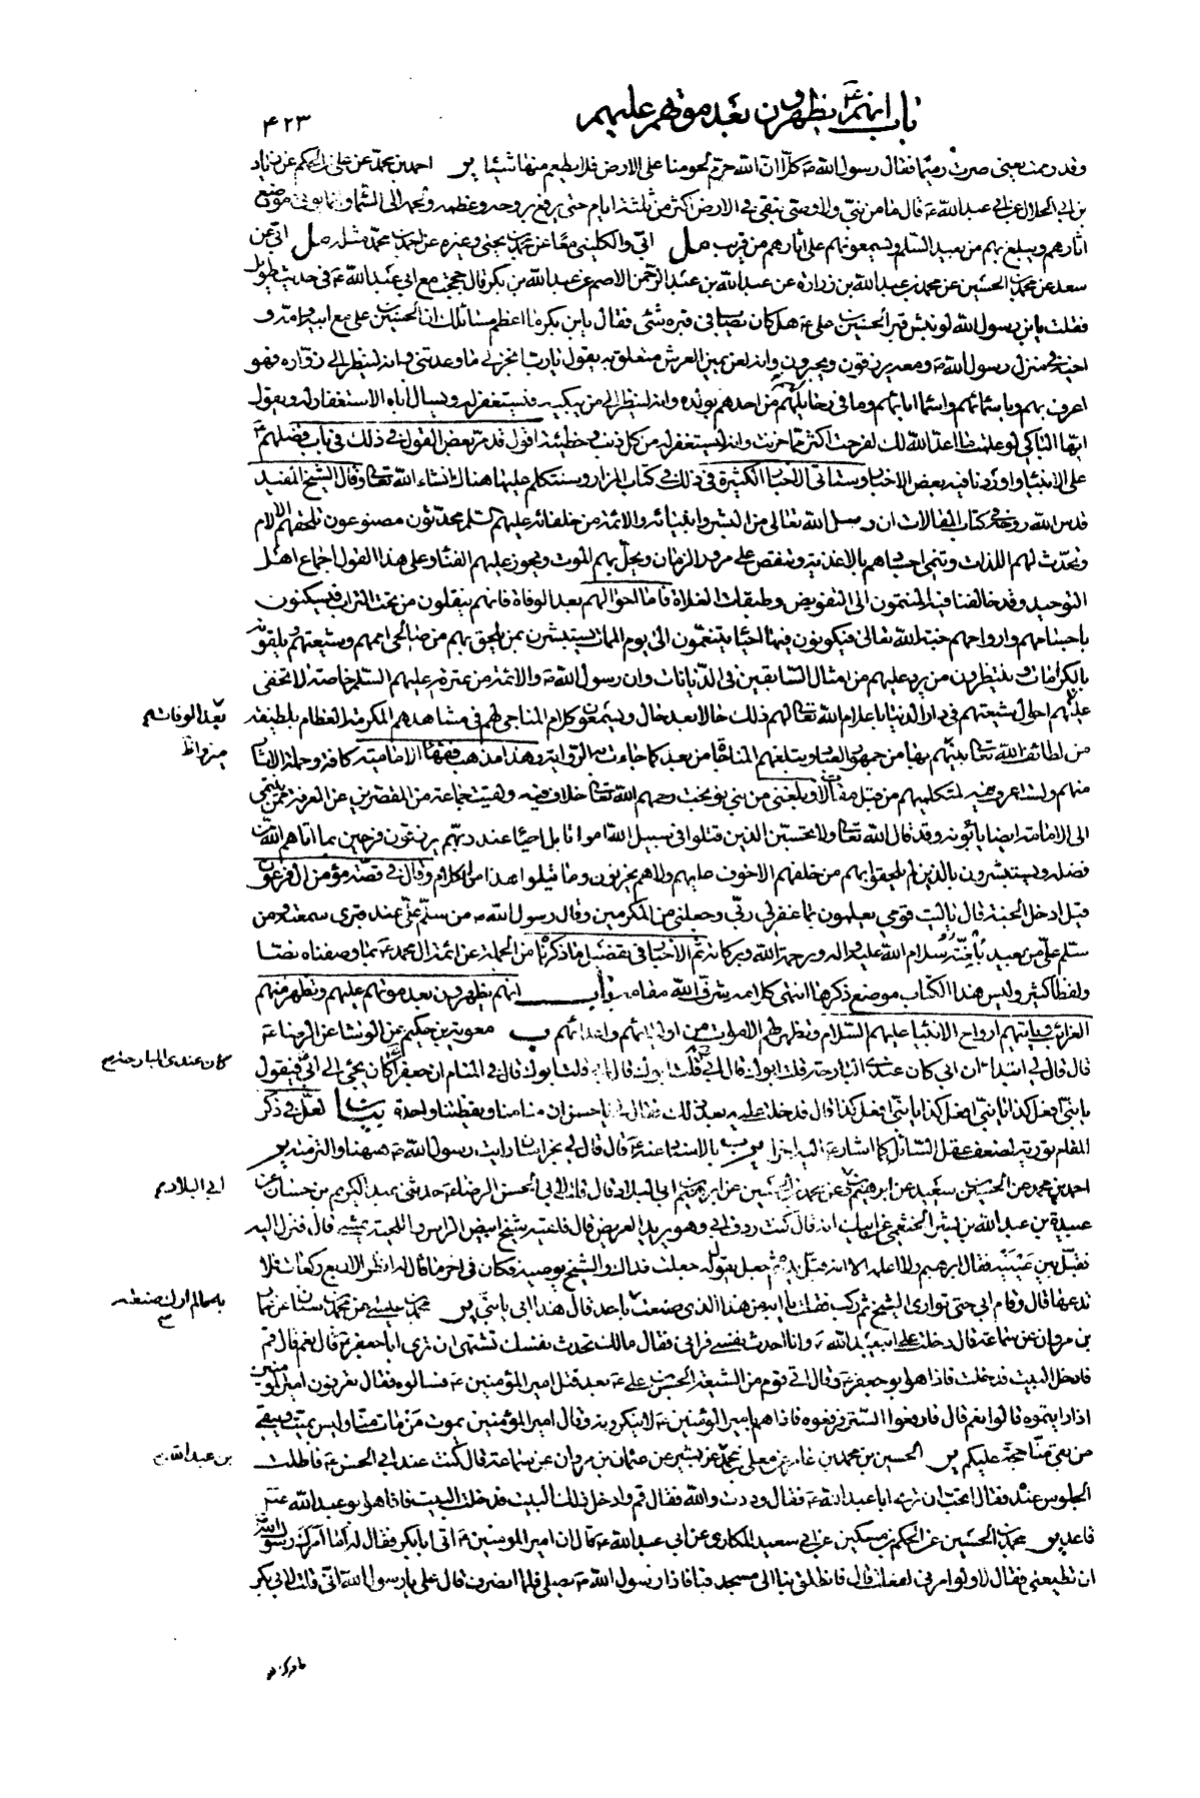 باب انهم ع يظهرون بعد موتهم عليهم
۴۲۳
وقد رممت يعني صرت رميما فقال رسول الله ص كلا ان الله حرم لحومنا على الارض فلا يطعم منها شيئا ير احمد بن محمد عن علي بن الحكم عن زياد
بن ابي الحلال عن ابي عبد الله ع قال ما من نبي ولا وصي يبقى في الارض اكثر من ثلثة ايام حتى يرفع بروحه وعظمه ولحمه الى السماء وانما يؤتى موضع
اثارهم ويبلغ بهم من بعيد السلم ويسمعونهم على اثارهم من قريب مل ابي والكليني معا عن محمد بن يحيى وغيره عن احمد بن محمد مثله مل ابي عن
سعد عن محمد بن الحسين عن محمد بن عبد الله بن زرارة عن عبد الله بن عبد الرحمن الاصم عن عبد الله بن بكر قال حججت مع ابي عبد الله ع في حديث طويل
فقلت يابن رسول الله لو نبش قبر الحسين بن علي ع هل كان يصاب في قبره شئ فقال يابن بكر ما اعظم مسائلك ان الحسين بن علي مع ابيه وامه و
اخيه في منزل رسول الله ص ومعه يرزقون ويحبرون وانه لعن يمين العرش متعلق به يقول يا رب انجز لي ما وعدتني وانه لينظر الى زواره فهو
اعرف بهم وباسمائهم واسماء ابائهم وما في رحالهم من احدهم بولده وانه لينظر الى من يبكيه فيستغفر له ويسال اباه الاستغفار له ويقول
ايها الباكي لو علمت ما اعد الله لك لفرحت اكثر مما حزنت وانه ليستغفر له من كل ذنب وخطيئة اقول قد مر بعض القول في ذلك في باب فضلهم ع
على الانبياء واوردنا فيه بعض الاخبار وستاتي الاخبار الكثيرة في ذلك في كتاب المزار وسنتكلم عليها هناك انشاء الله تعالى وقال الشيخ المفيد
قدس الله روحه في كتاب المقالات ان رسل الله تعالى من البشر وانبيائه والائمة من خلفائه عليهم السلم محدثون مصنوعون تلحقهم الالام
وتحدث لهم اللذات وتنمي اجسامهم بالاغذية وتنقص على مرور الزمان ويحل بهم الموت ويجوز عليهم الفناء وعلى هذا القول اجماع اهل
التوحيد وقد خالفنا فيه المنتمون الى التفويض وطبقات الغلاة فاما احوالهم بعد الوفاة فانهم ينقلون من تحت التراب فيسكنون
باجسامهم وارواحهم جنة الله تعالى فيكونون فيها احياء يتنعمون الى يوم الممات يستبشرون بمن يلحق بهم من صالحي اممهم وشيعتهم ويلقونه
بالكرامات وينتظرون من يرد عليهم من امثال السابقين في الديانات وان رسول الله ص والائمة من عترته عليهم السلم خاصة لا تخفى
عليهم احوال شيعتهم في دار الدنيا باعلام الله تعالى لهم ذلك حالا بعد حال ويسمعون كلام المناجي لهم في مشاهدهم المكرمة العظام بلطيفة
بعد الوفاة
من لطائف الله تعالى بينهم بها من جمهور العباد ويبلغهم المناجاة من بعد كما جاءت به الرواية وهذا مذهب فقهاء الامامية كافة وحملة الاثار
منهم ولست اعرف فيه لمتكلميهم من قبل مقالا وبلغني من بني نوبخت رحمهم الله تعالى خلاف فيه ولقيت جماعة من المقصرين عن المعرفة ممن ينتمي
الى الامامة ايضا يابونه وقد قال الله تعالى ولا تحسبن الذين قتلوا في سبيل الله امواتا بل احياء عند ربهم يرزقون فرحين بما اتاهم الله من
فضله ويستبشرون بالذين لم يلحقوا بهم من خلفهم الا خوف عليهم ولا هم يحزنون وما يتلوا هذا من الكلام وقال في قصة مؤمن ال فرعون
قيل ادخل الجنة قال يا ليت قومي يعلمون بما غفر لي ربي وجعلني من المكرمين وقال رسول الله ص من سلم علي عند قبري سمعته ومن
سلم علي من بعيد بلغته سلام الله عليه واله ورحمة الله وبركاته ثم الاخبار في تفصيل ما ذكرناه من الجملة عن ائمة ال محمد ع بما وصفناه نصا
ولفظا كثير وليس هذا الكتاب موضع ذكرها انتهى كلامه شرف الله مقامه باب انهم يظهرون بعد موتهم عليهم ويظهر منهم
الغرائب وياتيهم ارواح الانبياء عليهم السلام وتظهر لهم الاموات من اوليائهم واعدائهم ب معوية بن حكيم عن الوشاء عن الرضا ع
قال قال لي ابتداء ان ابي كان عندي البارحة قلت ابوك قال ابي قلت ابوك قال ابي قلت ابوك قال في المنام ان جعفرا كان يجئ الى ابي فيقول
كان عندي البارحة
يا بني افعل كذا يا بني افعل كذا يا بني افعل كذا قال فدخلت عليه بعد ذلك فقال لي يا حسن ان منامنا ويقظتنا واحدة بيان لعل في ذكر
المقام تورية لضعف عقل السائل كما اشار ع اليه اخرا ب بالاسناد عنه ع قال قال لي بخراسان رايت رسول الله ص ههنا والتزمته ير
احمد بن محمد عن الحسين بن سعيد عن ابرهيم بن ابي البلاد قال قلت لابي الحسن الرضا ع حدثني عبد الكريم بن حسان عن
ابي البلاد
عبيدة بن عبد الله بن بشر الخثعمي عن ابيك انه قال كنت ردف ابي وهو يريد العريض قال فلقيه شيخ ابيض الراس واللحية يمشي قال فنزل اليه
فقبل بين عينيه فقال ابرهيم ولا اعلمه الا انه قبل يده ثم جعل يقول له جعلت فداك والشيخ يوصيه فكان في اخر ما قال له انظر الاربع ركعات فلا
تدعها قال وقام ابي حتى توارى الشيخ ثم ركب فقلت يا ابه من هذا الذي صنعت به ما لم ارك صنعته باحد قال هذا ابي يا بني ير محمد بن عيسى عن محمد بن سنان عن عمار
ما لم ارك صنعته
بن مروان عن سماعة قال دخلت على ابي عبد الله ع وانا احدث نفسي فراني فقال مالك تحدث نفسك تشتهي ان ترى ابا جعفر ع قال نعم قال قم
فادخل البيت فدخلت فاذا هو ابو جعفر ع وقال اتى قوم من الشيعة الحسن بن علي ع بعد قتل امير المؤمنين ع فسالوه فقال تعرفون امير المؤمنين
اذا رايتموه قالوا نعم قال فارفعوا الستر فرفعوه فاذا هم بامير المؤمنين ع لا ينكرونه وقال امير المؤمنين يموت من مات منا وليس بميت ويبقى
من بقي منا حجة عليكم ير الحسين بن محمد بن عامر عن معلى بن محمد عن بشير عن عثمان بن مروان عن سماعة قال كنت عند ابي الحسن ع فاطلت
بن عبد الله
الجلوس عنده فقال اتحب ان ترى ابا عبد الله ع فقال وددت والله فقال قم وادخل ذلك البيت فدخلت البيت فاذا هو ابو عبد الله ع
قاعد ير محمد بن الحسين عن الحكم بن مسكين عن ابي سعيد المكاري عن ابي عبد الله ع قال ان امير المؤمنين ع اتى ابا بكر فقال له اما امرك رسول الله
ان تطيعني فقال لا ولو امرني لفعلت قال فانطلق بنا الى مسجد قبا فاذا رسول الله ص يصلي فلما انصرف قال علي يا رسول الله اني قلت لابي بكر